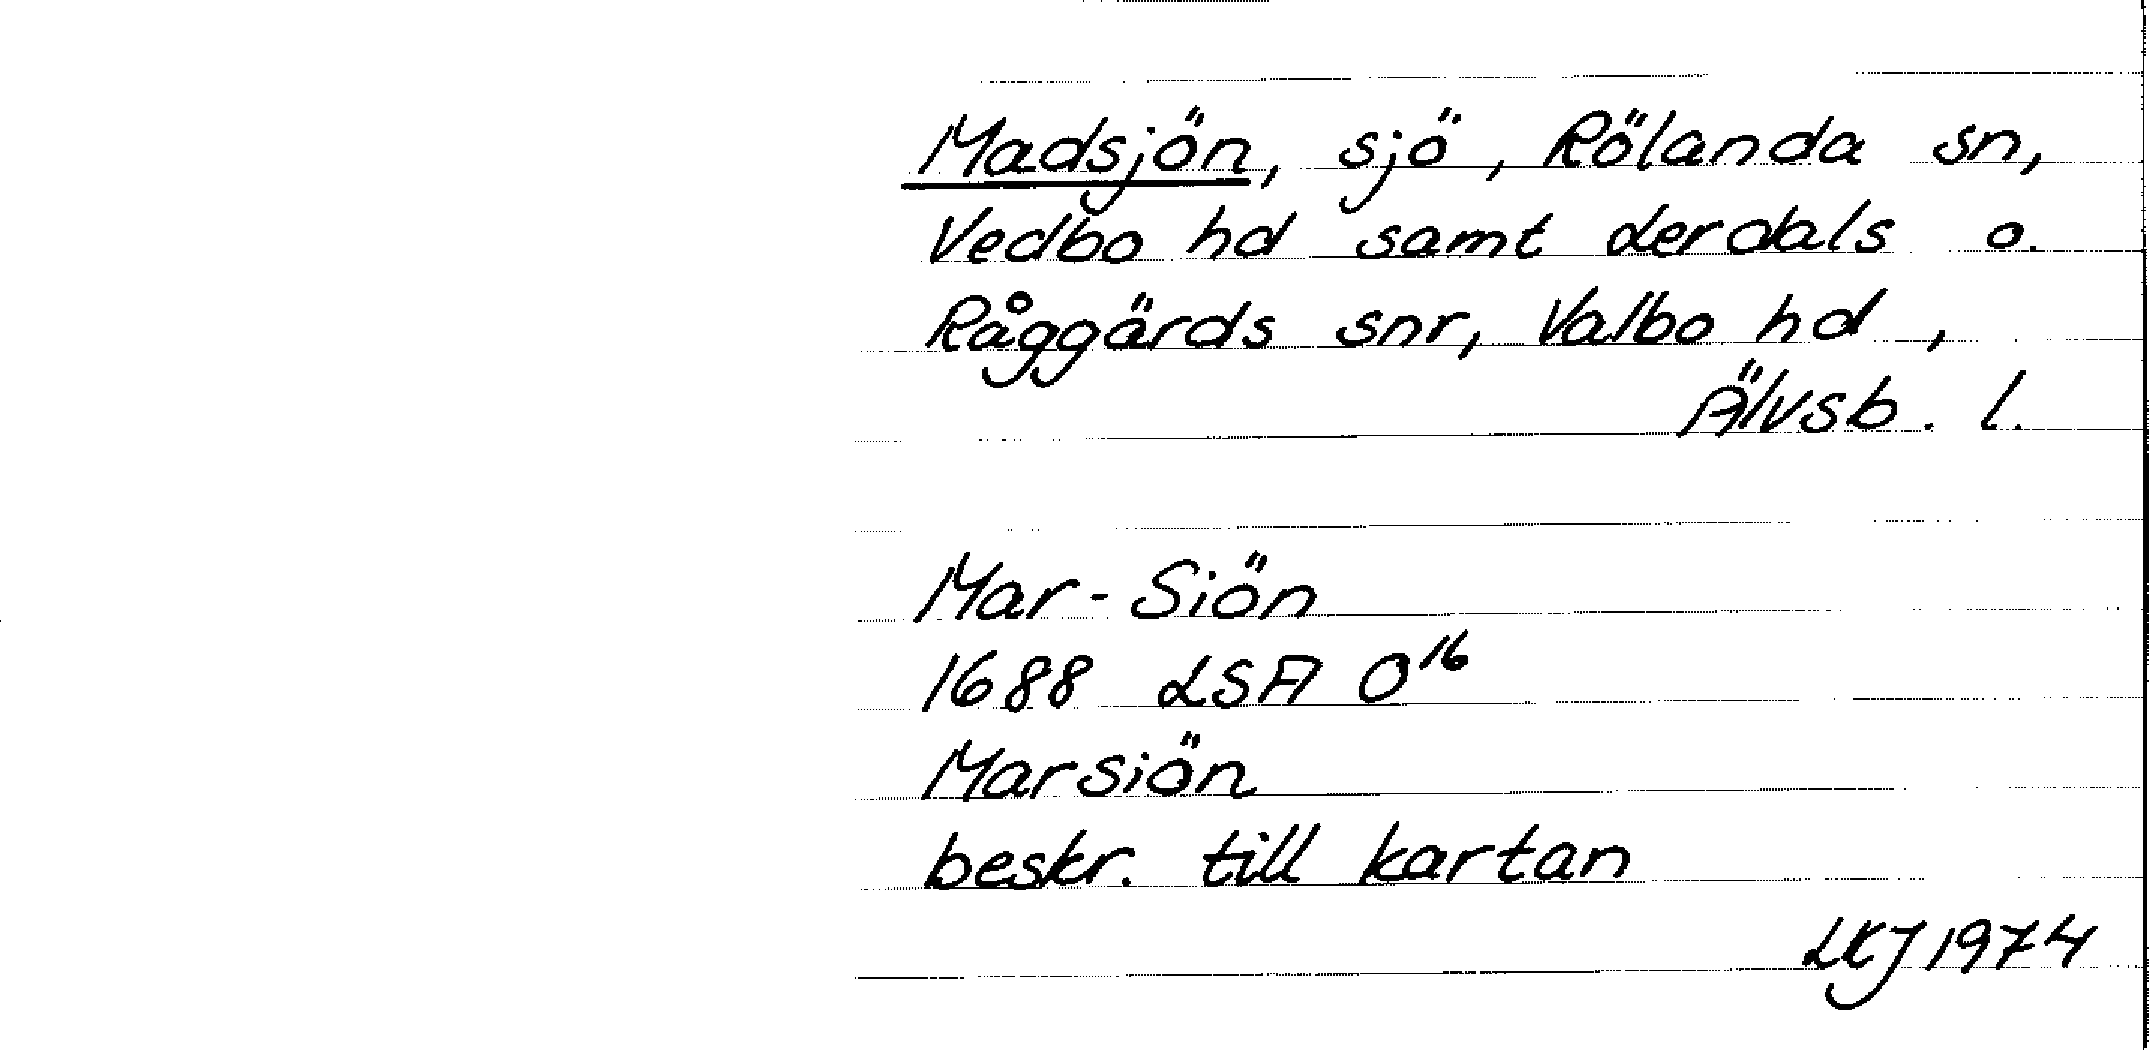 Madsjön, sjö, Rölanda sn,
Vedbo hd samt Lerdals o.
Råggärds snr, Valbo hd,
Älvsb. l.
Mar-Siön
1688 LSA O16
Marsiön
beskr. till kartan
LKJ 1974